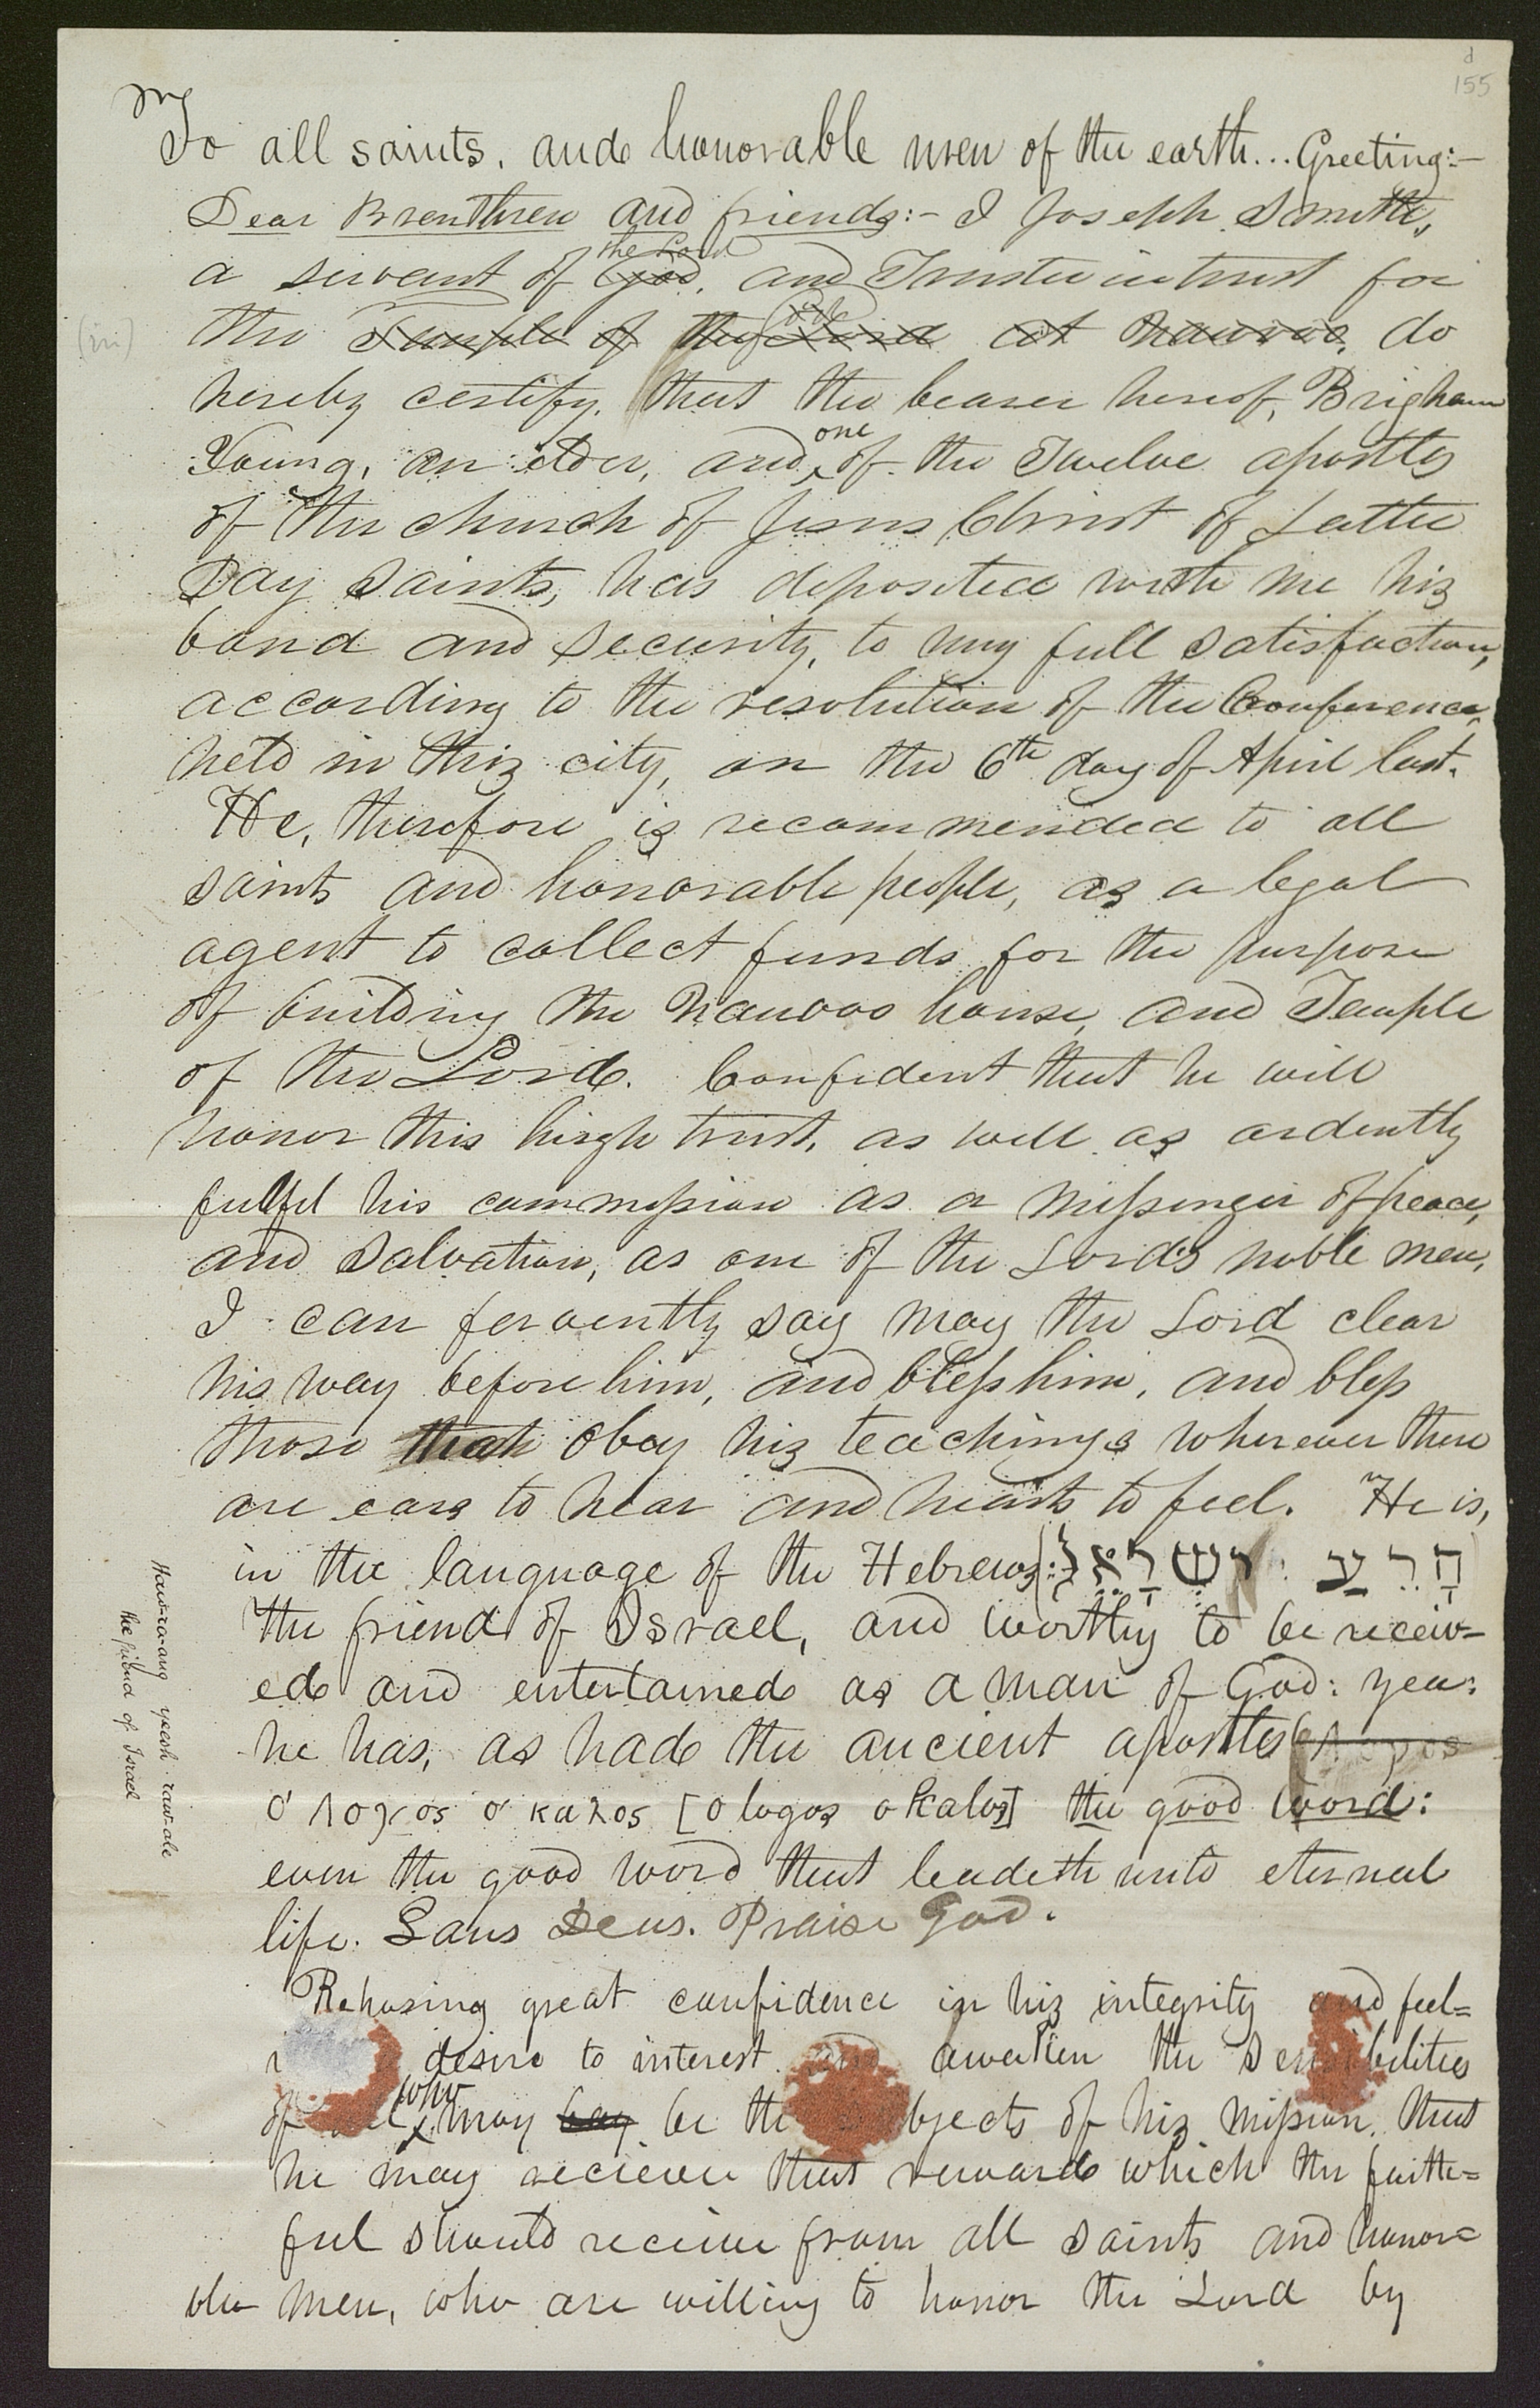 155
To all saints, and honorable men of the earth... Greeting:-
Dear Brenthren and friends:- I Joseph Smith,
the Lord
a servant of God, and Trustee in trust for
the Temple of the Lord at Nauvoo, do
hereby certify, that the bearer hereof, Brigham
one
Young, an elder, and of the Twelve apostles
of the church of Jesus Christ of Latter
Day Saints, has deposited with me his
bond and security, to my full satisfaction,
according to the resolution of the Conference,
held in this city, on the 6th day of April last.
He, therefore is recommended to all
saints and honorable people, as a legal
agent to collect funds for the purpose
of building the Nauvoo house, and Temple
of the Lord. Confident that he will
honor this high trust, as well as ardently
fulfil his commission as a messenger of peace,
and salvation, as one of the Lord's noble men,
I can fervently say may the Lord clear
his way before him, and bless him, and bless
those that obey his teachings wherever there
are ears to hear and hearts to feel. He is,
in the language of the Hebrews, הָרֵעַ ישְׁרָאֵל:
the friend of Israel, and worthy to be receiv-
ed and entertained as a man of God: yea:
he has, as had the ancient apostles
ο' Λογος ο' καλος [O logos o Kalos] the good word:
even the good word that leadeth unto eternal
life. Laus Deus. Praise God.
Reposing great confidence in his integrity and feel=
desire to interest and awaken the sensibilities
who
of may bay be the bjects of his mission, that
he may recieve that reward which the faith=
ful should receive from all saints and honor=
ble men, who are willing to honor the Lord by
Haw-ra-ang yeesh-raw-ale
the friend of Israel